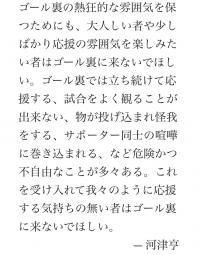 ゴール裏の熱狂的な雰囲気を保
つためにも、大人しい者や少し
ばかり応援の雰囲気を楽しみた
い者はゴール裏に来ないでほし
い。ゴール裏では立ち続けて応
援する、試合をよく観ることが
出来ない、物が投げ込まれ怪我
をする、サポーター同士の喧嘩
に巻き込まれる、など危険かつ
不自由なことが多々ある。これ
を受け入れて我々のように応援
する気持ちの無い者はゴール裏
に来ないでほしい。
— 河津亨